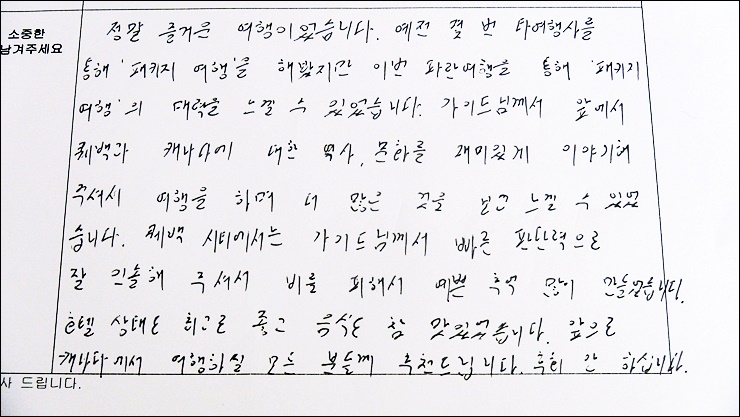 소중한
남겨주세요
정말 즐거운 여행이었습니다. 예전 몇 번 타여행사를
통해 '패키지 여행'을 해봤지만 이번 파란여행을 통해 '패키지
여행'의 매력을 느낄 수 있었습니다. 가이드님께서 앞에서
퀘백과 캐나다에 대한 역사, 문화를 재미있게 이야기해
주셔서 여행을 하며 더 많은 것을 보고 느낄 수 있었
습니다. 퀘백 시티에서는 가이드님께서 빠른 판단력으로
잘 인솔해 주셔서 비를 피해서 예쁜 추억 많이 만들었습니다.
호텔 상태도 최고로 좋고 음식도 참 맛있었습니다. 앞으로
캐나다에서 여행하실 모든 분들께 추천드립니다. 후회 안 하십니다.
사 드립니다.